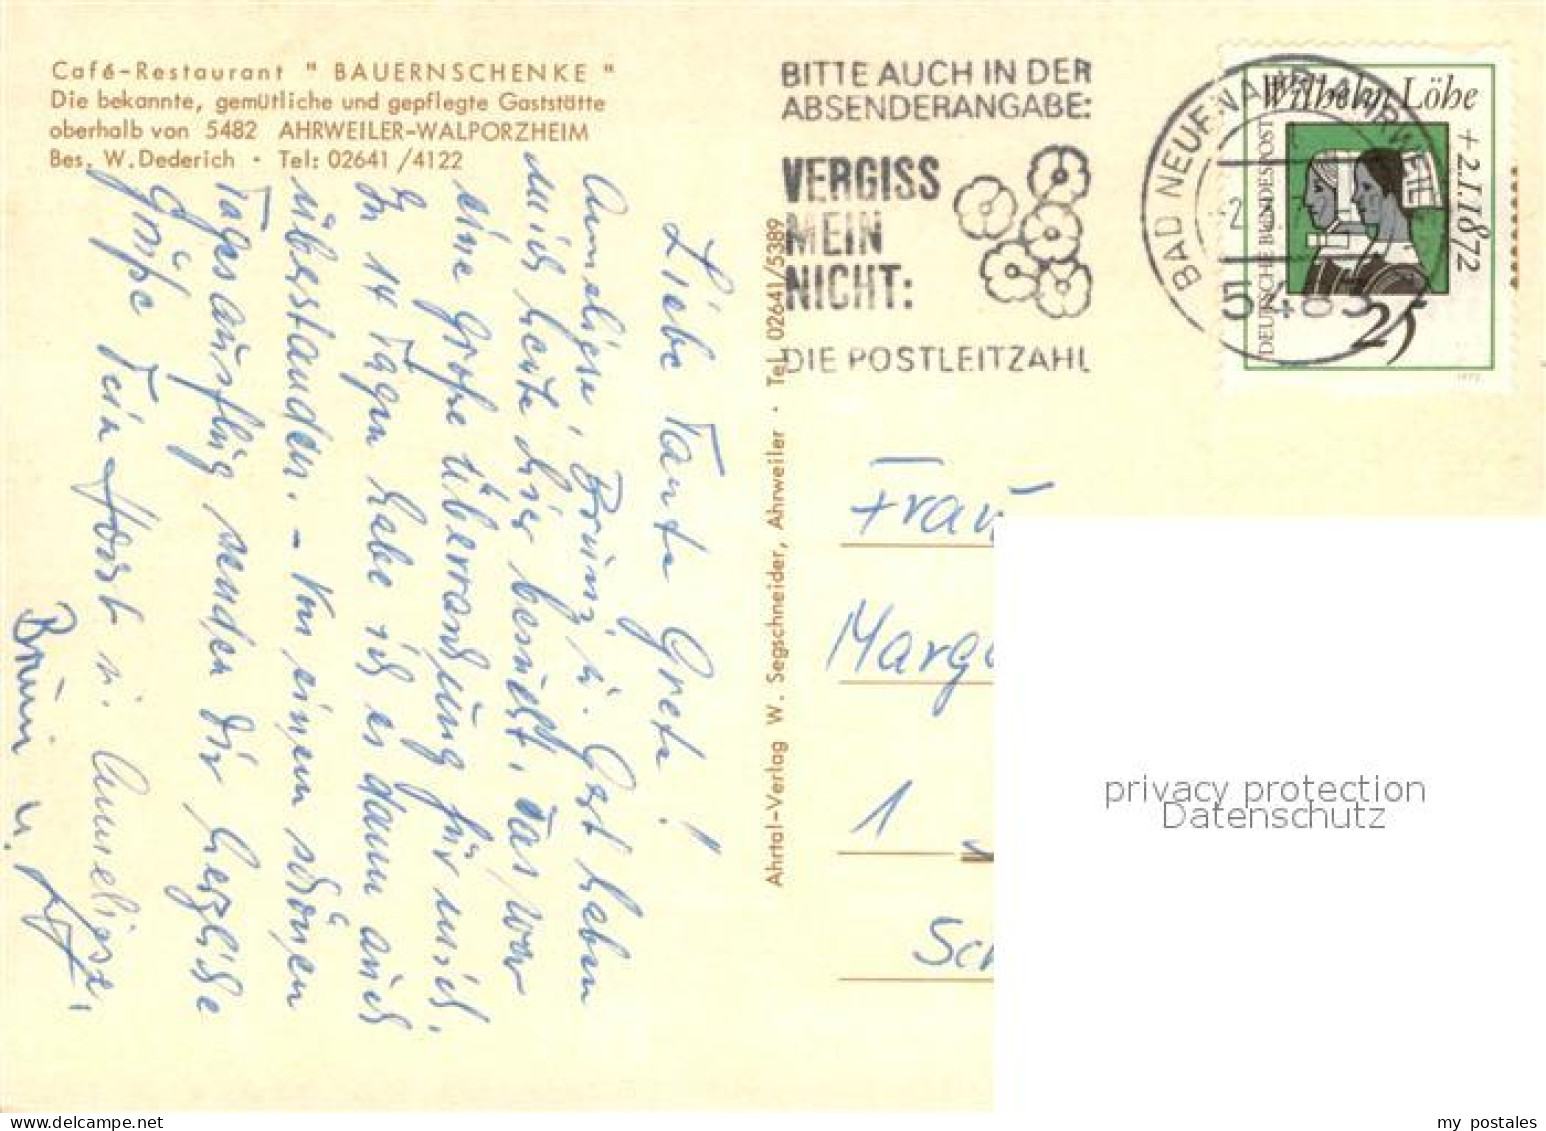 Café-Restaurant " BAUERNSCHENKE "
Die bekannte, gemütliche und gepflegte Gaststätte
oberhalb von 5482 AHRWEILER-WALPORZHEIM
Bes. W. Dederich • Tel: 02641/4122
Liebe Tante Greta!
Anneliese, Bruni u. Gert haben
mich heute hier besucht, das war
eine große Überraschung für mich.
In 14 Tagen habe ich es dann auch
überstanden. - Von einem schönen
Tagesausflug senden Dir herzliche
Grüße Dein Horst u. Anneliese,
Bruni u.
Ahrtal-Verlag W. Segschneider, Ahrweiler • Tel. 02641/5389
BITTE AUCH IN DER
ABSENDERANGABE:
VERGISS
MEIN
NICHT:
DIE POSTLEITZAHL
BAD NEUENAHR-AHRWEILER
5483
Wilhelm Löhe
+ 2.1.1872
DEUTSCHE BUNDESPOST
25
1972
Frau
1
privacy protection
Datenschutz
my postales